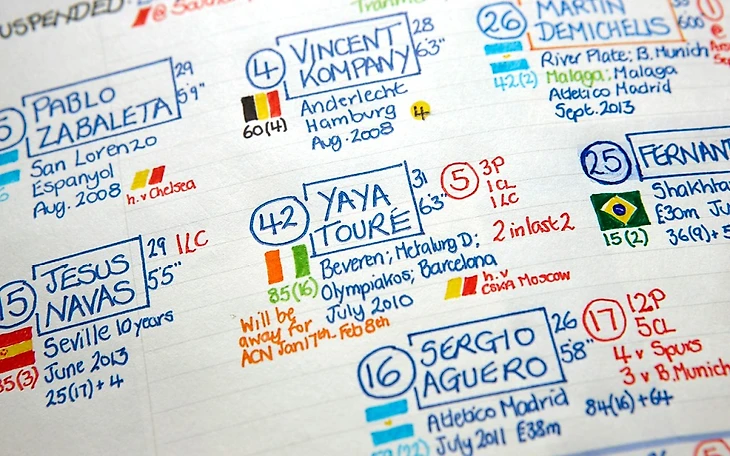 SUSPENDED:
@ Southa
26
MARTIN
DEMICHELIS
600
1
@
42(2)
River Plate; B. Munich
Malaga; Malaga
Atletico Madrid
Sept. 2013
4
VINCENT
KOMPANY
28
6'3"
60(4)
Anderlecht
Hamburg
Aug. 2008
4
5
PABLO
ZABALETA
29
5'9"
San Lorenzo
Espanyol
Aug. 2008
h.v Chelsea
25
FERNAN
15(2)
Shakhta
£30m Ju
36(9)+5
42
YAYA
TOURÉ
31
6'3"
5
3P
1CL
1LC
2 in last 2
85(16)
Beveren; Metalurg D;
Olympiakos; Barcelona
July 2010
h.v
CSKA Moscow
Will be
away for
ACN Jan 17th - Feb 8th
15
JESUS
NAVAS
29
1LC
5'5"
35(3)
Seville 10 years
June 2013
25(17)+4
16
SERGIO
AGUERO
26
5'8"
17
12P
5CL
4 v Spurs
3 v B. Munich
Atletico Madrid
July 2011 £38m
84(16)+64